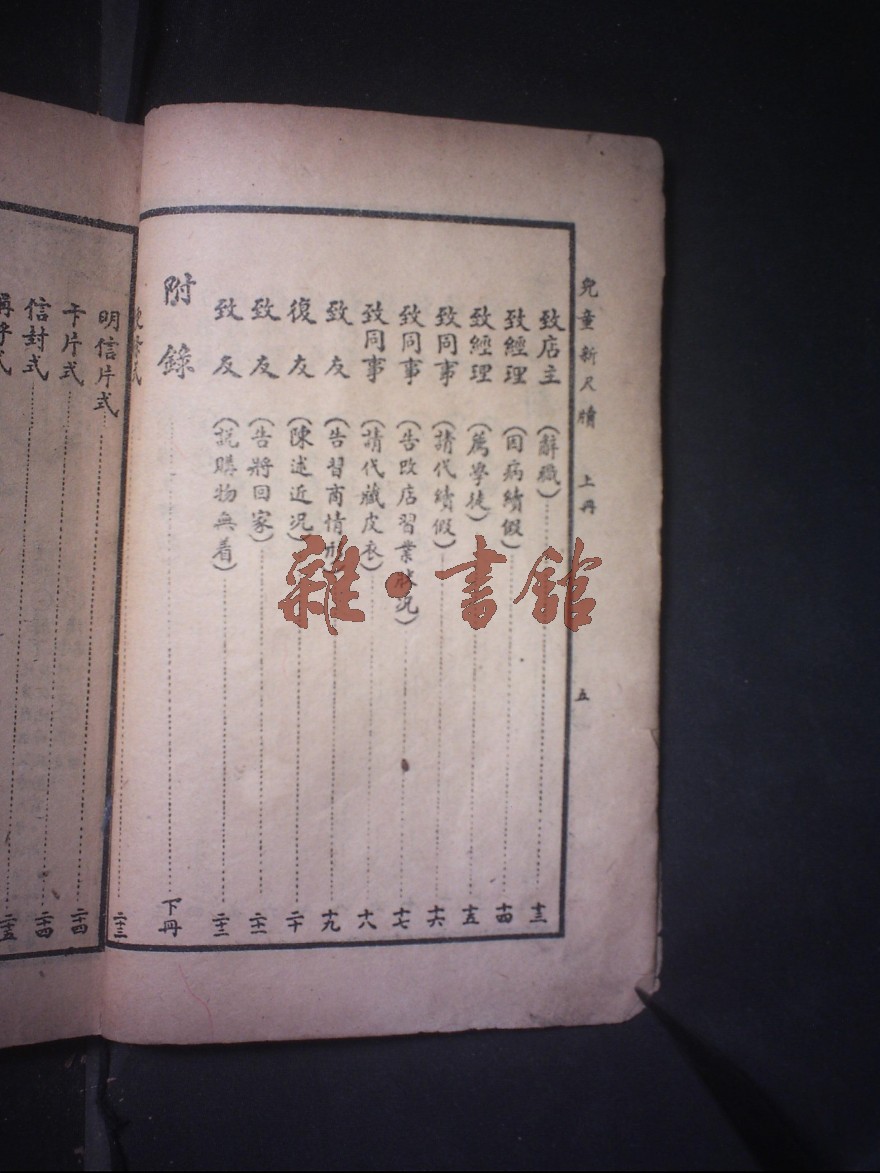 兒童新尺牘 上冊 五
致店主(辭職)十三
致經理(因病續假)十四
致經理(薦學徒)十五
致同事(請代續假)十六
致同事(告改店習業狀況)十七
致同事(請代藏皮衣)十八
致友(告習商情形)十九
復友(陳述近況)二十
致友(告將回家)二十一
致友(說購物無着)二十二
附錄 下冊
二十三
明信片式
卡片式 二十四
信封式 二十四
二十五
雜·書館